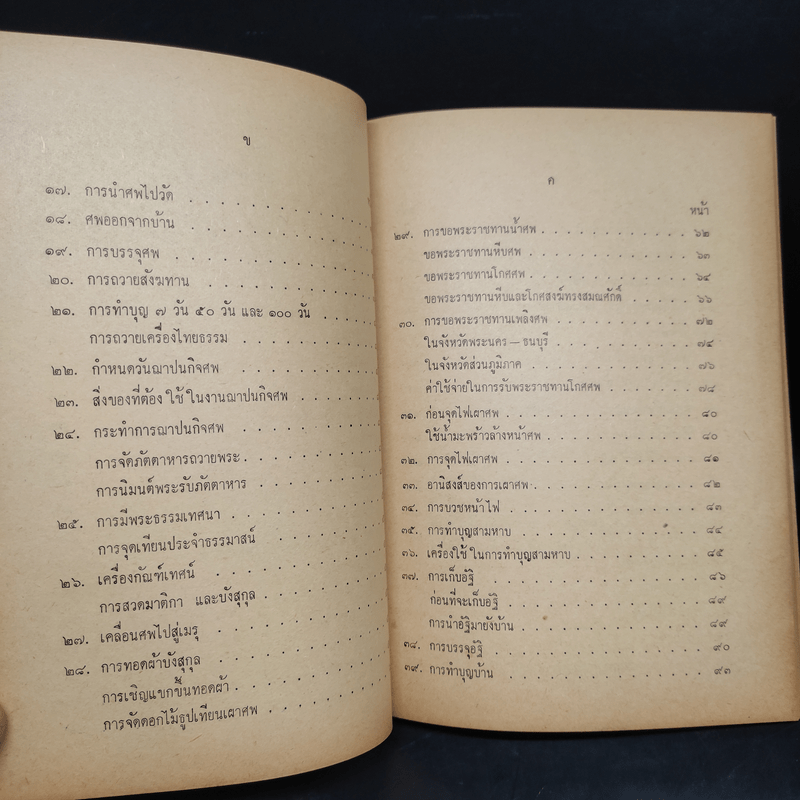 ข
๑๗. การนำศพไปวัด
๑๘. ศพออกจากบ้าน
๑๙. การบรรจุศพ
๒๐. การถวายสังฆทาน
๒๑. การทำบุญ ๗ วัน ๕๐ วัน และ ๑๐๐ วัน
การถวายเครื่องไทยธรรม
๒๒. กำหนดวันฌาปนกิจศพ
๒๓. สิ่งของที่ต้องใช้ในงานฌาปนกิจศพ
๒๔. กระทำการฌาปนกิจศพ
การจัดภัตตาหารถวายพระ
การนิมนต์พระรับภัตตาหาร
๒๕. การมีพระธรรมเทศนา
การจุดเทียนประจำธรรมาสน์
๒๖. เครื่องกัณฑ์เทศน์
การสวดมาติกา และบังสุกุล
๒๗. เคลื่อนศพไปสู่เมรุ
๒๘. การทอดผ้าบังสุกุล
การเชิญแขกขึ้นทอดผ้า
การจัดดอกไม้ธูปเทียนเผาศพ
ค
หน้า
๒๙. การขอพระราชทานน้ำศพ ๖๒
ขอพระราชทานหีบศพ ๖๓
ขอพระราชทานโกศศพ ๖๔
ขอพระราชทานหีบและโกศสงฆ์ทรงสมณศักดิ์ ๖๖
๓๐. การขอพระราชทานเพลิงศพ ๗๒
ในจังหวัดพระนคร — ธนบุรี ๗๔
ในจังหวัดส่วนภูมิภาค ๗๖
ค่าใช้จ่ายในการรับพระราชทานโกศศพ ๗๘
๓๑. ก่อนจุดไฟเผาศพ ๘๐
ใช้น้ำมะพร้าวล้างหน้าศพ ๘๐
๓๒. การจุดไฟเผาศพ ๘๑
๓๓. อานิสงส์ของการเผาศพ ๘๒
๓๔. การบวชหน้าไฟ ๘๓
๓๕. การทำบุญสามหาบ ๘๔
๓๖. เครื่องใช้ในการทำบุญสามหาบ ๘๕
๓๗. การเก็บอัฐิ ๘๖
ก่อนที่จะเก็บอัฐิ ๘๙
การนำอัฐิมายังบ้าน ๘๙
๓๘. การบรรจุอัฐิ ๙๐
๓๙. การทำบุญบ้าน ๙๓